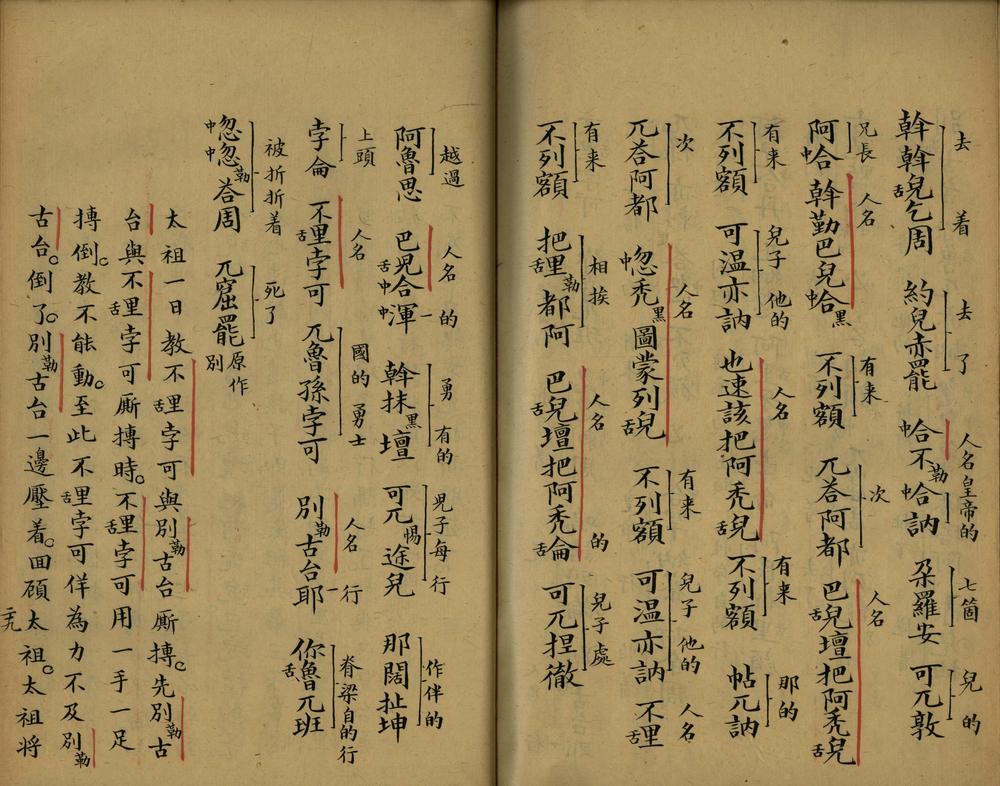 去 着 去 了 人名 皇帝的 七箇 兒 的
斡斡舌兒乞周 約兒赤罷 中合不勒中合訥 朶羅安 可兀敦
兄長 人名 有来 次 人名
阿中合 斡勤巴兒中合黑 不列額 兀荅阿都 巴舌兒壇把阿禿舌兒
有来 兒子 他的 人名 有来 那的
不列額 可溫亦訥 也速該把阿禿舌兒 不列額 帖兀訥
次 人名 有来 兒子 他的 人名
兀荅阿都 中忽禿黑圖蒙列舌兒 不列額 可溫亦訥 不舌里
有来 相挨 人名 的 兒子處
不列額 把舌里勒都阿 巴舌兒壇把阿禿舌侖 可兀捏徹
越過 人名 的 勇 有的 兒子每 行 作伴的
阿魯思 巴舌兒中合中渾 斡抹黑壇 可兀惕途兒 那闊扯坤
上頭 人名 國的 勇士 人名 行 脊梁自的行
孛侖 不舌里孛可 兀魯孫孛可 別勒古台耶 你舌魯兀班
被折折着 死了
中忽中忽勒荅周 兀窟罷 原作別
太祖一日教不舌里孛可與別勒古台厮摶。先別勒古
台與不舌里孛可厮摶時。不舌里孛可用一手一足
摶倒。教不能動。至此不舌里孛可佯為力不及別勒
古台。倒了。別勒古台一邊壓着。回顧太祖。太祖將